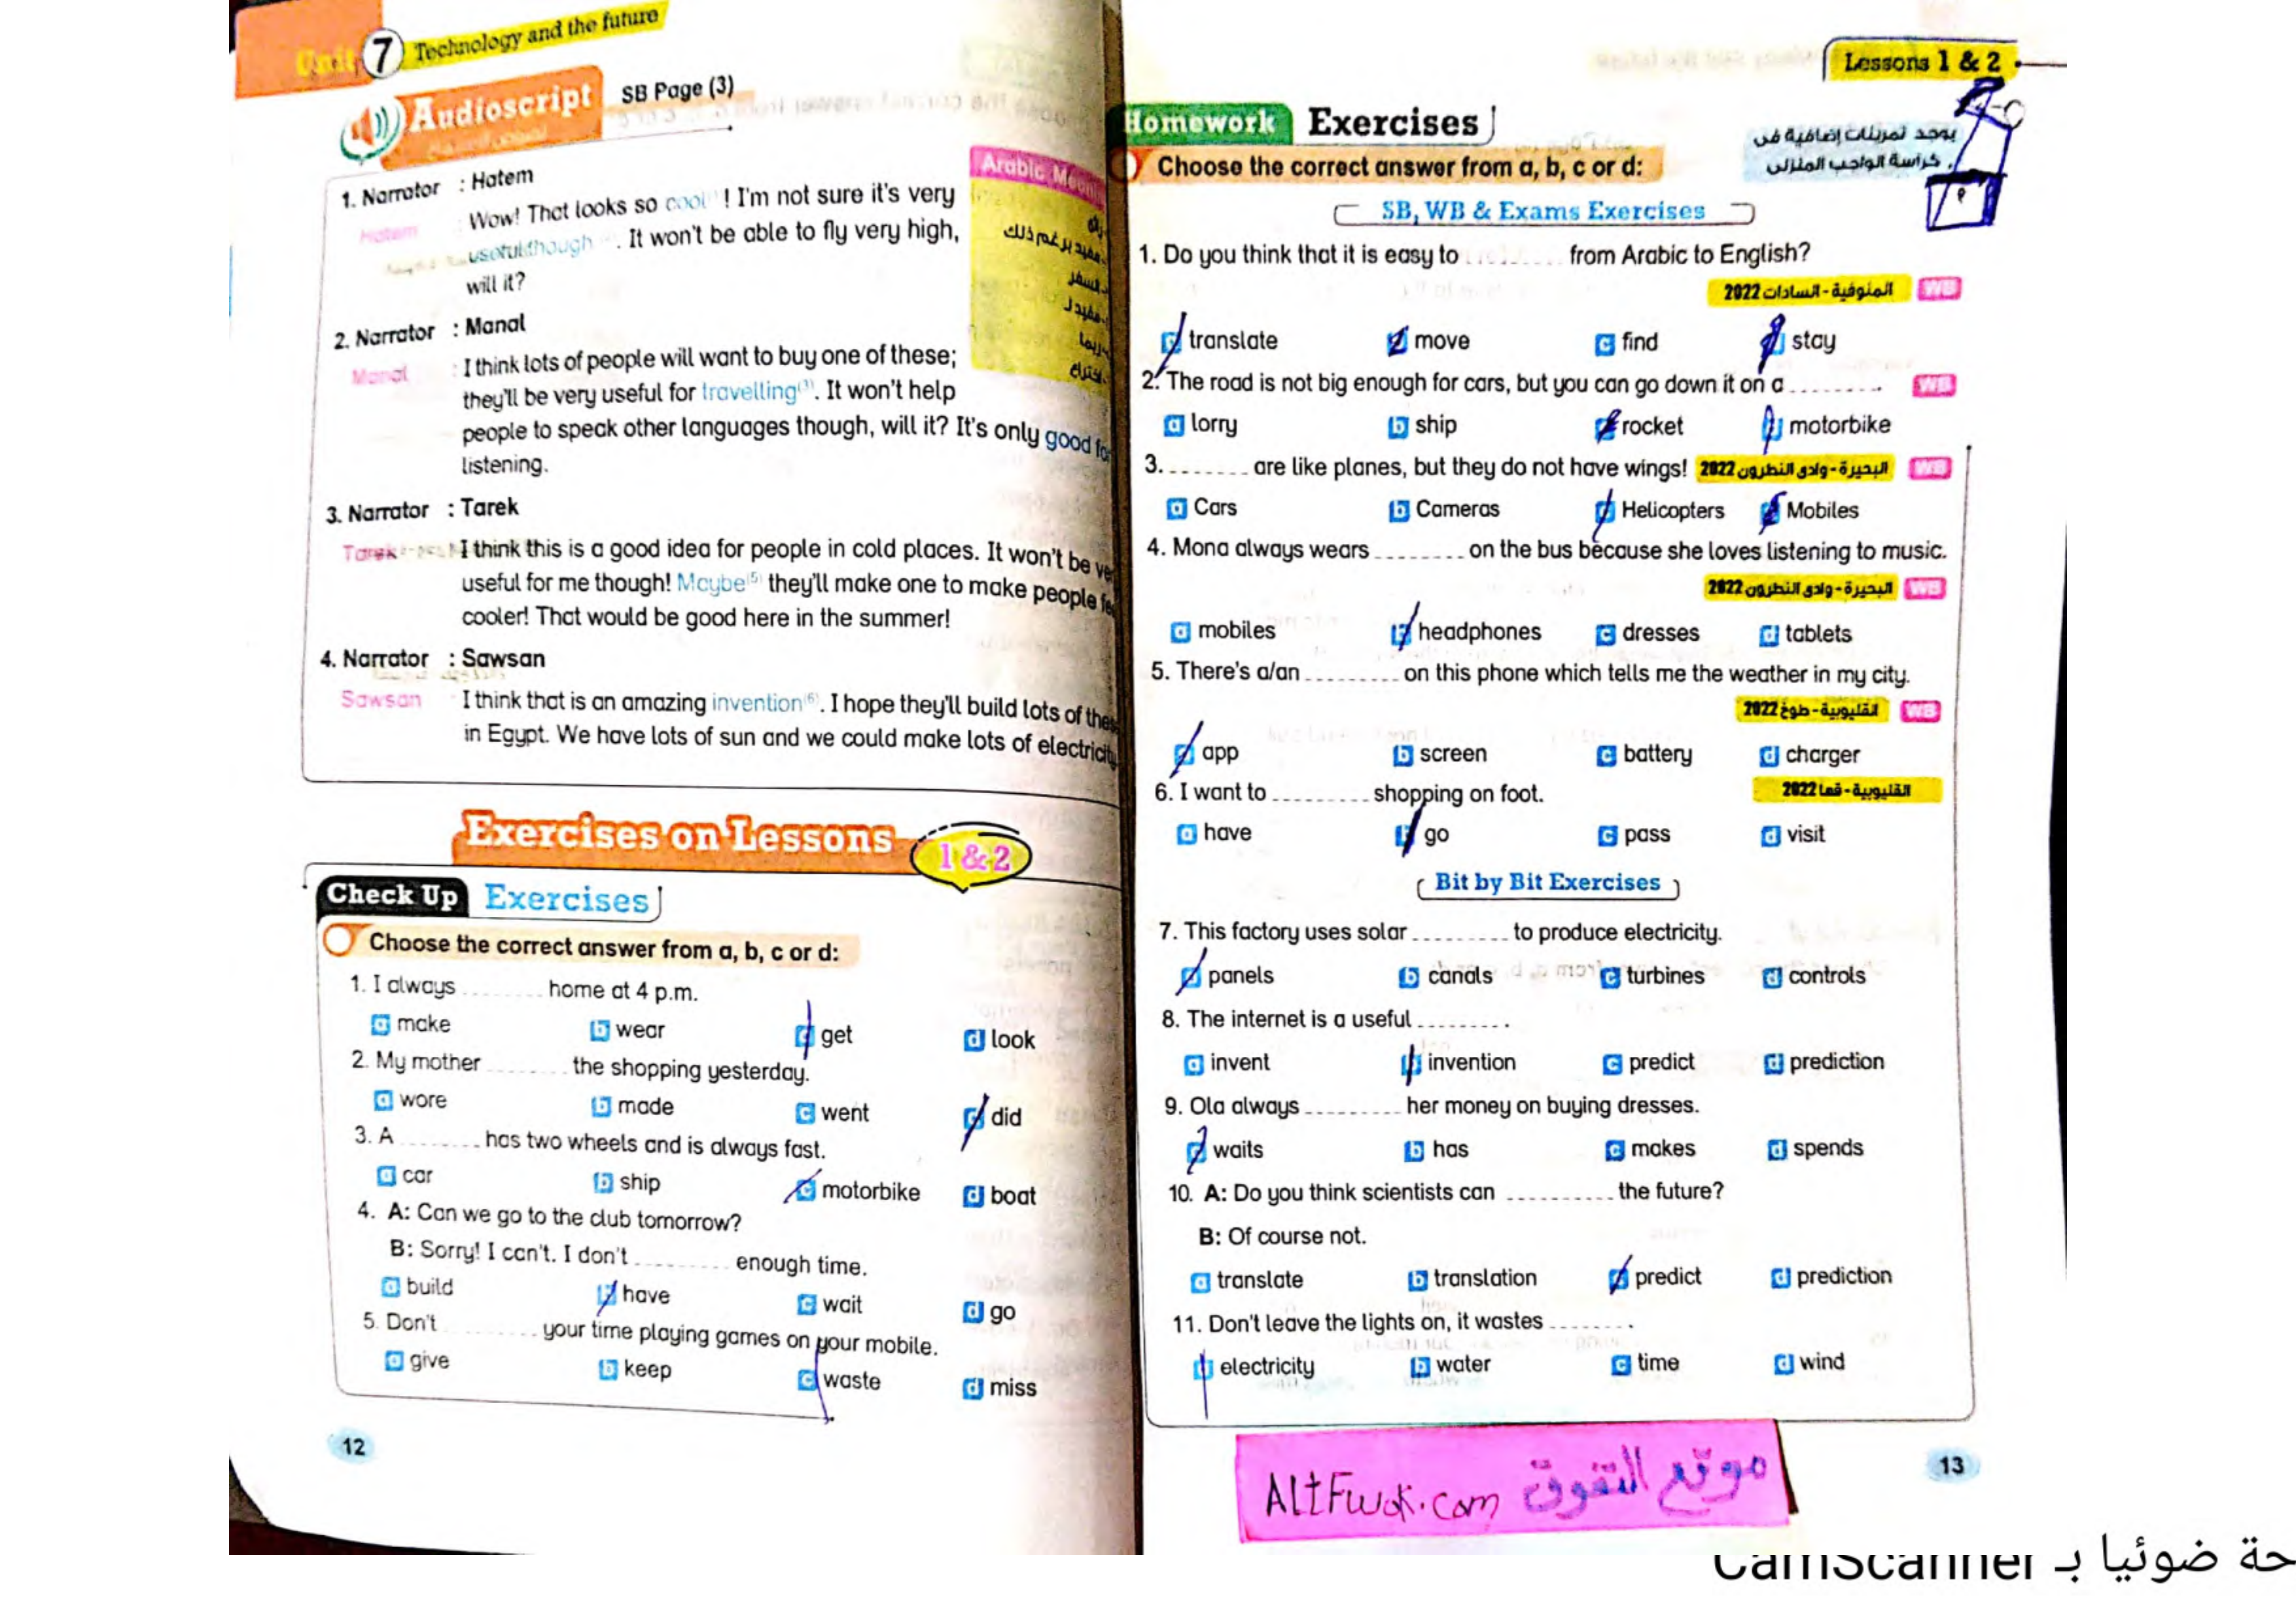 Unit 7 Technology and the future
Audioscript SB Page (3)
1. Narrator : Hatem
Hatem : Wow! That looks so cool! I'm not sure it's very
useful though. It won't be able to fly very high,
will it?
2. Narrator : Manal
Manal : I think lots of people will want to buy one of these;
they'll be very useful for travelling(3). It won't help
people to speak other languages though, will it? It's only good for
listening.
3. Narrator : Tarek
Tarek : I think this is a good idea for people in cold places. It won't be
useful for me though! Maybe(5) they'll make one to make people
cooler! That would be good here in the summer!
4. Narrator : Sawsan
Sawsan I think that is an amazing invention(6). I hope they'll build lots of these
in Egypt. We have lots of sun and we could make lots of electricity
Arabic
مفيد برغم ذلك
السفر
مفيد لـ
ربما
اختراع
Exercises on Lessons 1 & 2
Check Up Exercises
Choose the correct answer from a, b, c or d:
1. I always ........ home at 4 p.m.
a make b wear c get d look
2. My mother ........ the shopping yesterday.
a wore b made c went d did
3. A ........ has two wheels and is always fast.
a car b ship c motorbike d boat
4. A: Can we go to the club tomorrow?
B: Sorry! I can't. I don't ........ enough time.
a build b have c wait d go
5. Don't ........ your time playing games on your mobile.
a give b keep c waste d miss
12
Lessons 1 & 2
Homework Exercises
يوجد تمرينات إضافية فى
كراسة الواجب المنزلى
Choose the correct answer from a, b, c or d:
SB, WB & Exams Exercises
1. Do you think that it is easy to ........ from Arabic to English?
المنوفية - السادات 2022 WB
a translate b move c find d stay
2. The road is not big enough for cars, but you can go down it on a ........ . WB
a lorry b ship c rocket d motorbike
3. ........ are like planes, but they do not have wings! البحيرة - وادى النطرون 2022 WB
a Cars b Cameras c Helicopters d Mobiles
4. Mona always wears ........ on the bus because she loves listening to music.
البحيرة - وادى النطرون 2022 WB
a mobiles b headphones c dresses d tablets
5. There's a/an ........ on this phone which tells me the weather in my city.
القليوبية - طوخ 2022 WB
a app b screen c battery d charger
6. I want to ........ shopping on foot. القليوبية - قها 2022
a have b go c pass d visit
Bit by Bit Exercises
7. This factory uses solar ........ to produce electricity.
a panels b canals c turbines d controls
8. The internet is a useful ........ .
a invent b invention c predict d prediction
9. Ola always ........ her money on buying dresses.
a waits b has c makes d spends
10. A: Do you think scientists can ........ the future?
B: Of course not.
a translate b translation c predict d prediction
11. Don't leave the lights on, it wastes ........ .
a electricity b water c time d wind
AltFwok.com موقع التفوق
13
حة ضوئيا بـ CamScanner